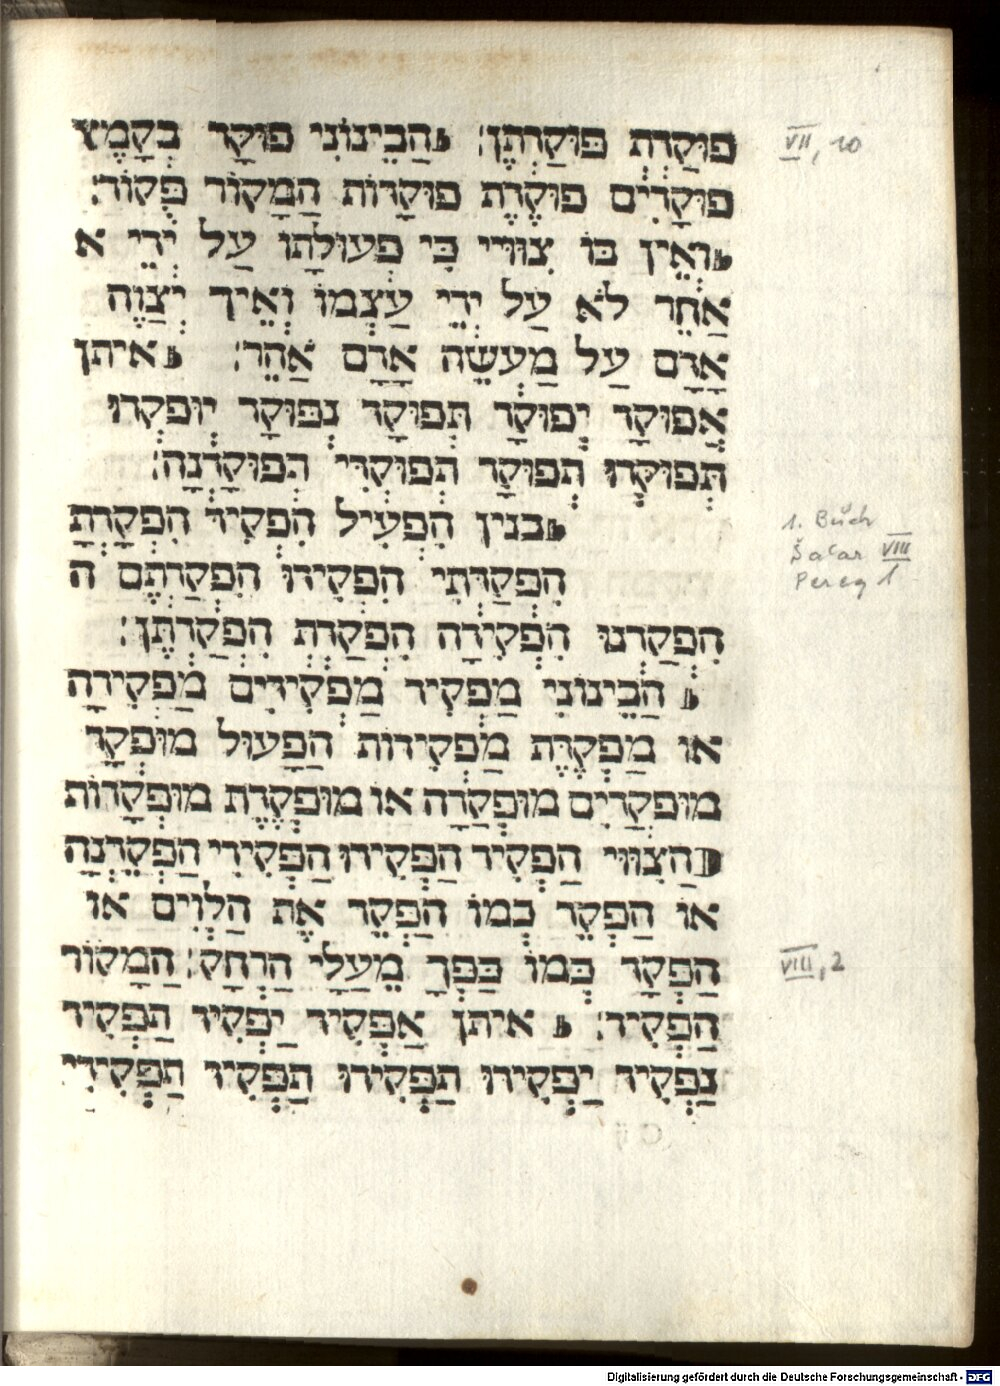 פוּקַדְתְּ פּוּקַדְתֶּן: הַבֵּינוֹנִי פוּקָּד בְּקָמֶץ
VII, 10
פוּקָדִים פוּקֶדֶת פוּקָּדוֹת הַמָּקוֹר פְּקוֹד:
וְאֵין בּוֹ צִוּוּיי כִּי פְעוּלָתוֹ עַל יְדֵי א
אַחֵר לֹא עַל יְדֵי עַצְמוֹ וְאֵיךְ יְצַוֶּה
אָדָם עַל מַעֲשֵׂה אָדָם אַחֵר: איתן
אֲפוּקַּד יְפוּקָּד תְּפוּקָּד נְפוּקָּד יְוּפקְדוּ
תְּפוּקְּדוּ תְּפוּקָּד תְּפוּקְּדִי תְּפוּקָּדְנָה:
בנין הִפְעִיל הִפְקִיד הִפְקַדְתָּ
1. Buch
הִפְקַדְתִּי הִפְקִידוּ הִפְקַדְתֶּם ה
Šaʿar VIII
Pereq 1
הִפְקַדְנוּ הִפְקִידָה הִפְקַדְתְּ הִפְקַדְתֶּן:
הַבֵּינוֹנִי מַפְקִיד מַפְקִידִים מַפְקִידָה
או מַפְקֶדֶת מַפְקִידוֹת הַפָּעוּל מוּפְקָד
מוּפקָדִים מוּפְקָדָה או מוּפְקֶדֶת מוּפְקָדוֹת
הַצִּוּוּיי הַפְקֵיד הַפְקִידוּ הַפְקִידִי הַפְקֵדְנָה
אוֹ הַפְקֵד כְּמוֹ הַפְקֵד אֶת הַלְוִיִּם או
הַפְקַד כְּמוֹ כַּפְּךָ מֵעָלַי הַרְחַק: הַמָּקוֹר
VIII, 2
הַפְקִיד: איתן אַפְקִיד יַפְקִיד תַּפְקִיד
נַפְקִיד יַפְקִידוּ תַּפְקִידוּ תַּפְקִיד תַּפְקִידִי
Digitalisierung gefördert durch die Deutsche Forschungsgemeinschaft - DFG